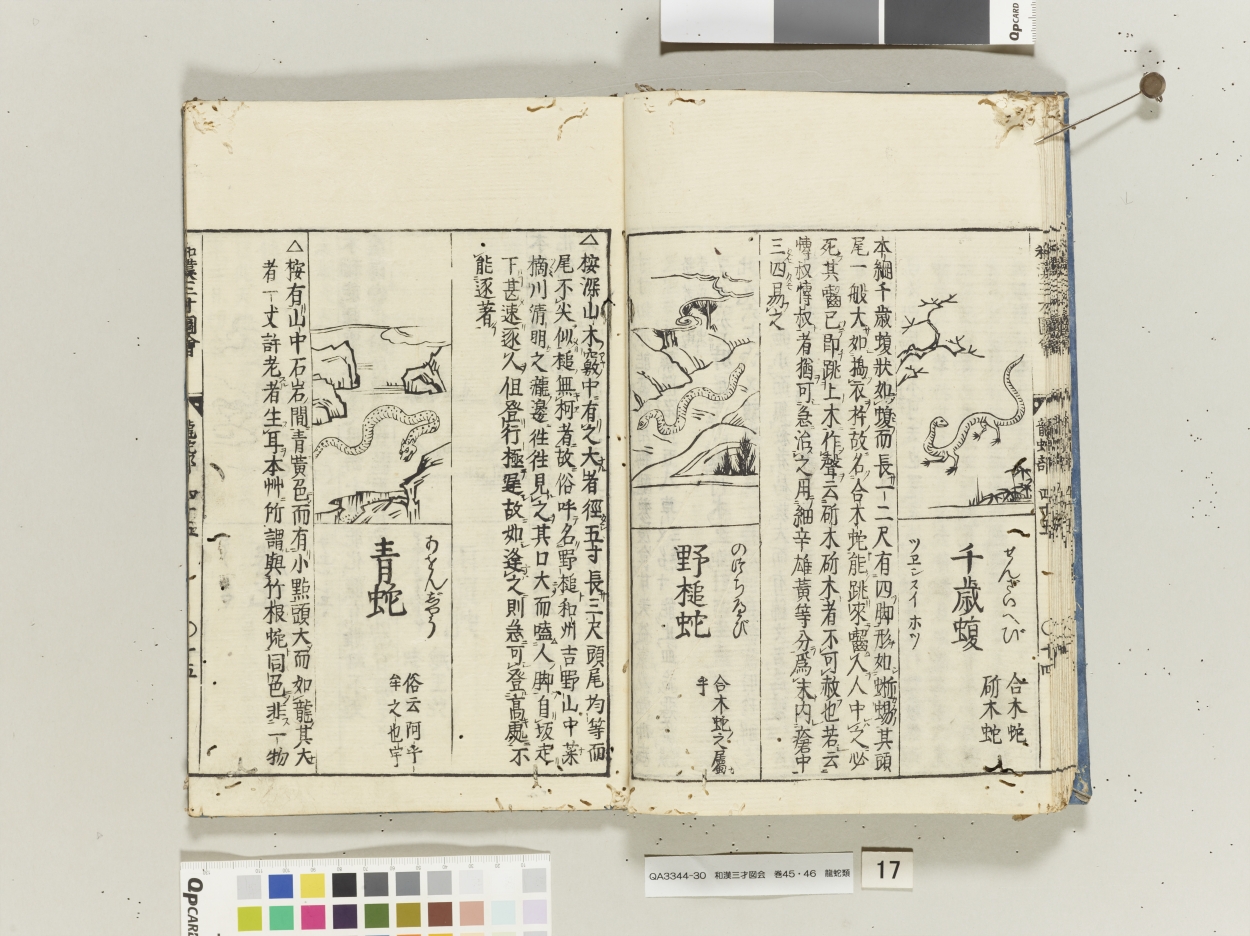 千歳蝮
せんざいへび
ツヱンスイ ホツ
合木蛇
斫木蛇
本綱千歳蝮狀如蝮而長一二尺有四脚形如蜥蜴其頭
尾一般大如搗衣杵故名合木蛇能跳來齧人人中之必
死其齧已即跳上木作聲云斫木斫木者不可救也若云
博叔博叔者猶可急治之用細辛雄黃等分爲末内瘡中
三四易之
野槌蛇
のづちへび
合木蛇之屬
乎
△桉深山木竅中有之大者徑五寸長三尺頭尾均等而
尾不尖似槌無柯者故俗呼名野槌和州吉野山中菜
摘川清明之瀧邊徃徃見之其口大而嗑人脚自坂走
下甚速逐人但登行極遲故如逢之則急可登高處不
能逐著
青蛇
あをんじやう
俗云阿乎
牟之也宇
△桉有山中石岩間青黃色而有小㸃頭大而如龍其大
者一丈許老者生耳本艸所謂與竹根蛇同色非一物
和漢三才圖會
龍蛇部 四十五
QpCARD
QpCARD
QA3344-30 和漢三才図会 巻45・46 龍蛇類
17